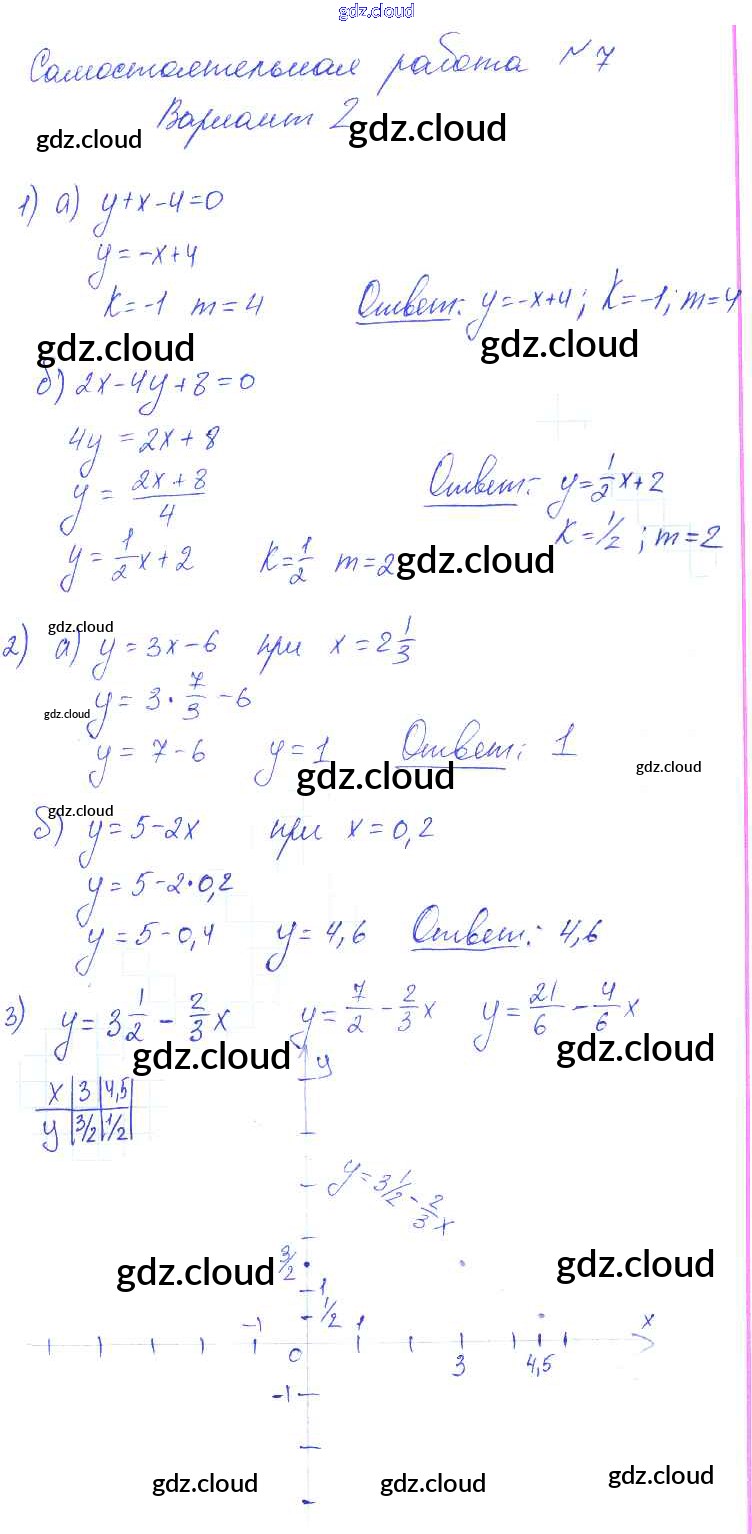 gdz.cloud
Самостоятельная работа №7
Вариант 2
gdz.cloud gdz.cloud
1) а) y+x-4=0
y=-x+4
K=-1 m=4 Ответ: y=-x+4; K=-1; m=4
gdz.cloud gdz.cloud
б) 2x-4y+8=0
4y=2x+8
y=(2x+8)/4 Ответ: y=1/2x+2
K=1/2; m=2
y=1/2x+2 K=1/2 m=2 gdz.cloud
gdz.cloud
2) а) y=3x-6 при x=2 1/3
y=3·7/3-6
gdz.cloud
y=7-6 y=1 Ответ: 1
gdz.cloud gdz.cloud
gdz.cloud
б) y=5-2x при x=0,2
y=5-2·0,2
y=5-0,4 y=4,6 Ответ: 4,6
3) y=3 1/2-2/3x y=7/2-2/3x y=21/6-4/6x
gdz.cloud gdz.cloud
x 3 4,5
y 3/2 1/2
y
y=3 1/2-2/3x
3/2
gdz.cloud gdz.cloud
1
1/2
-1 1 x
0 3 4,5
-1
gdz.cloud gdz.cloud gdz.cloud